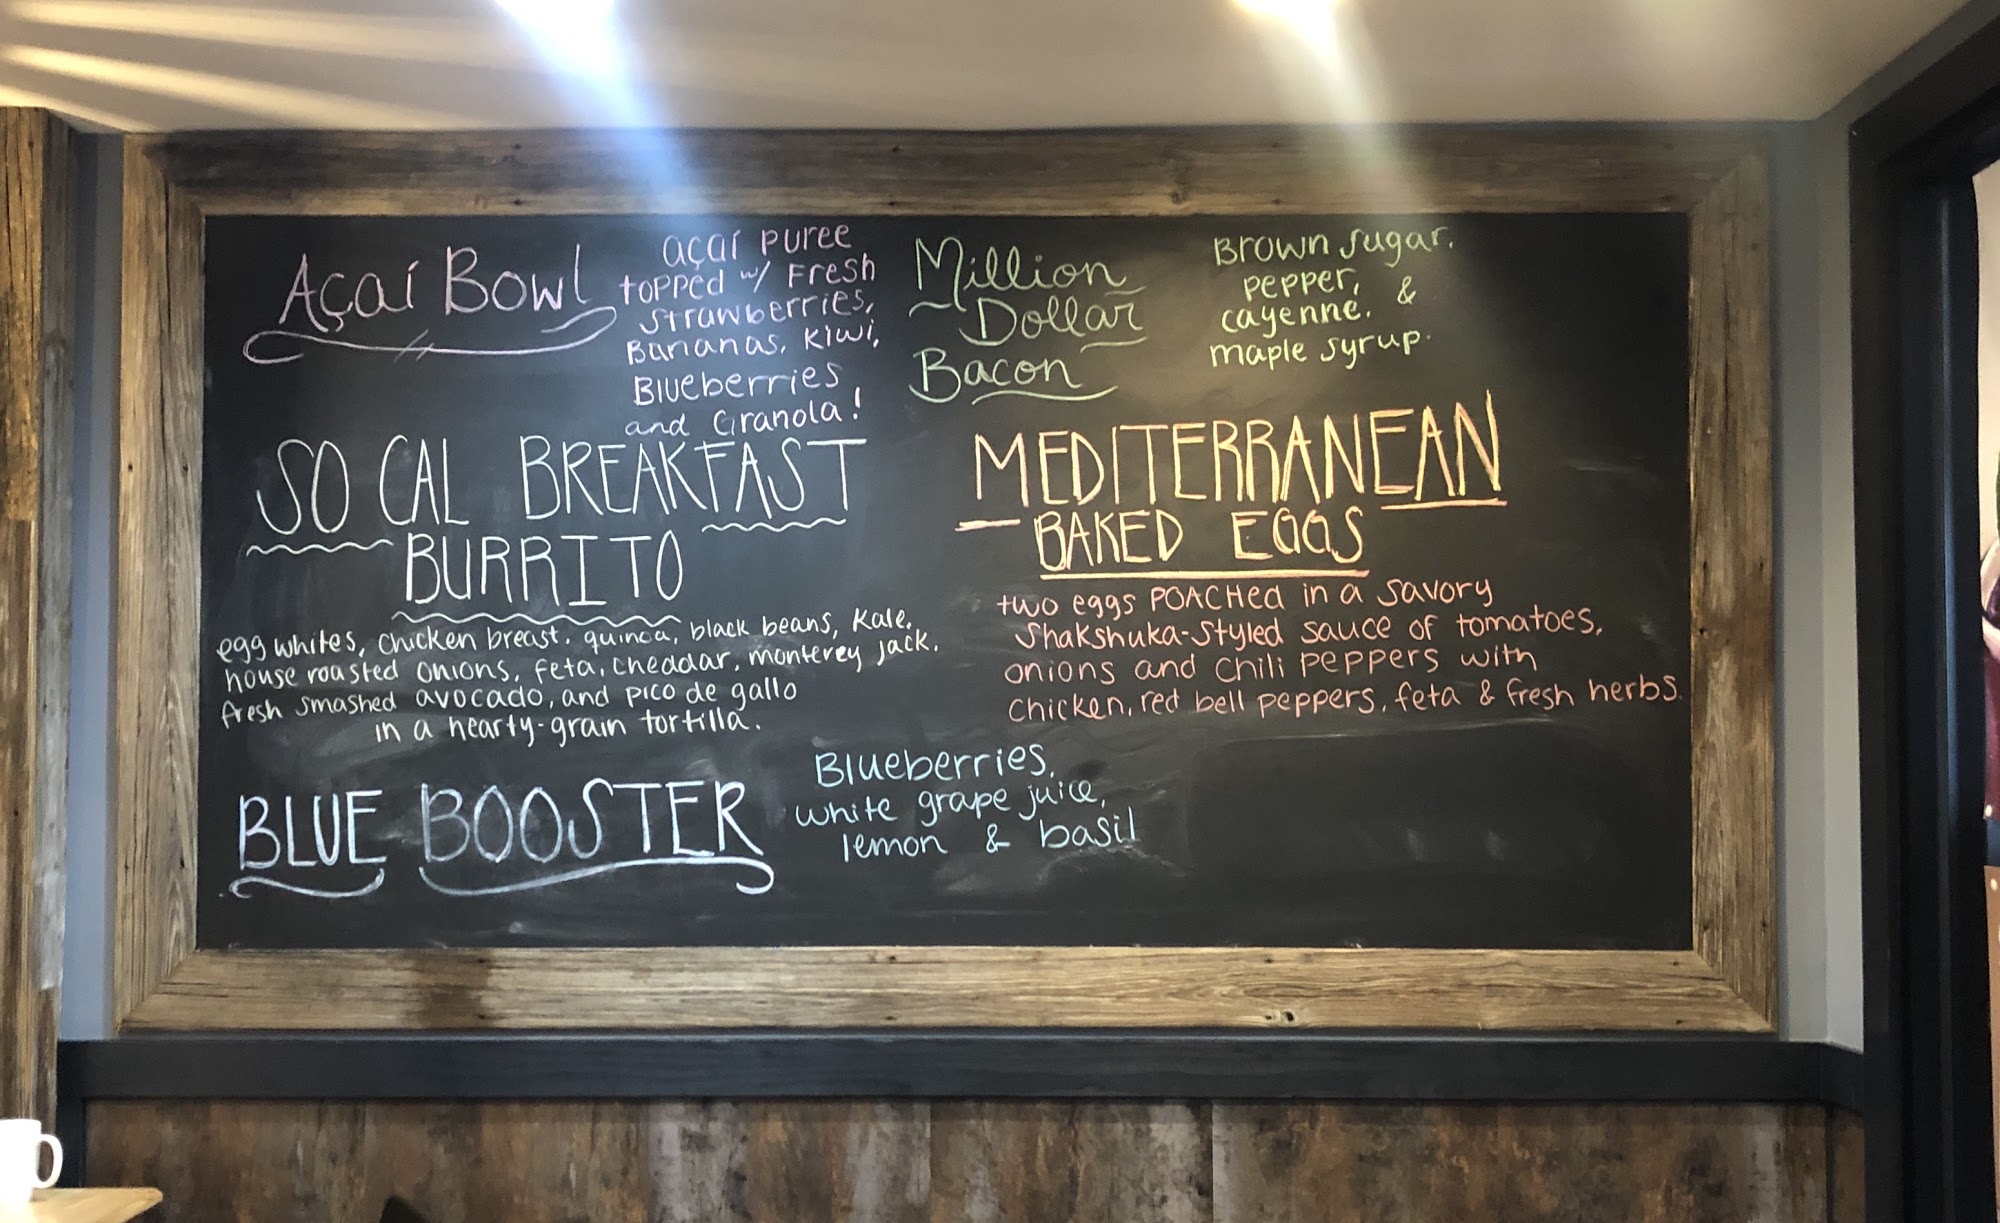 Açaí Bowl
açaí puree
topped w/ Fresh
strawberries,
Bananas, Kiwi,
Blueberries
and Granola!
Million
Dollar
Bacon
Brown sugar,
pepper,
cayenne, &
maple syrup.
SO CAL BREAKFAST
BURRITO
egg whites, chicken breast, quinoa, black beans, Kale,
house roasted onions, feta, cheddar, monterey jack,
fresh smashed avocado, and pico de gallo
in a hearty-grain tortilla.
MEDITERRANEAN
BAKED EGGS
two eggs POACHed in a savory
Shakshuka-styled sauce of tomatoes,
onions and chili peppers with
chicken, red bell peppers, feta & fresh herbs.
BLUE BOOSTER
Blueberries,
white grape juice,
lemon & basil